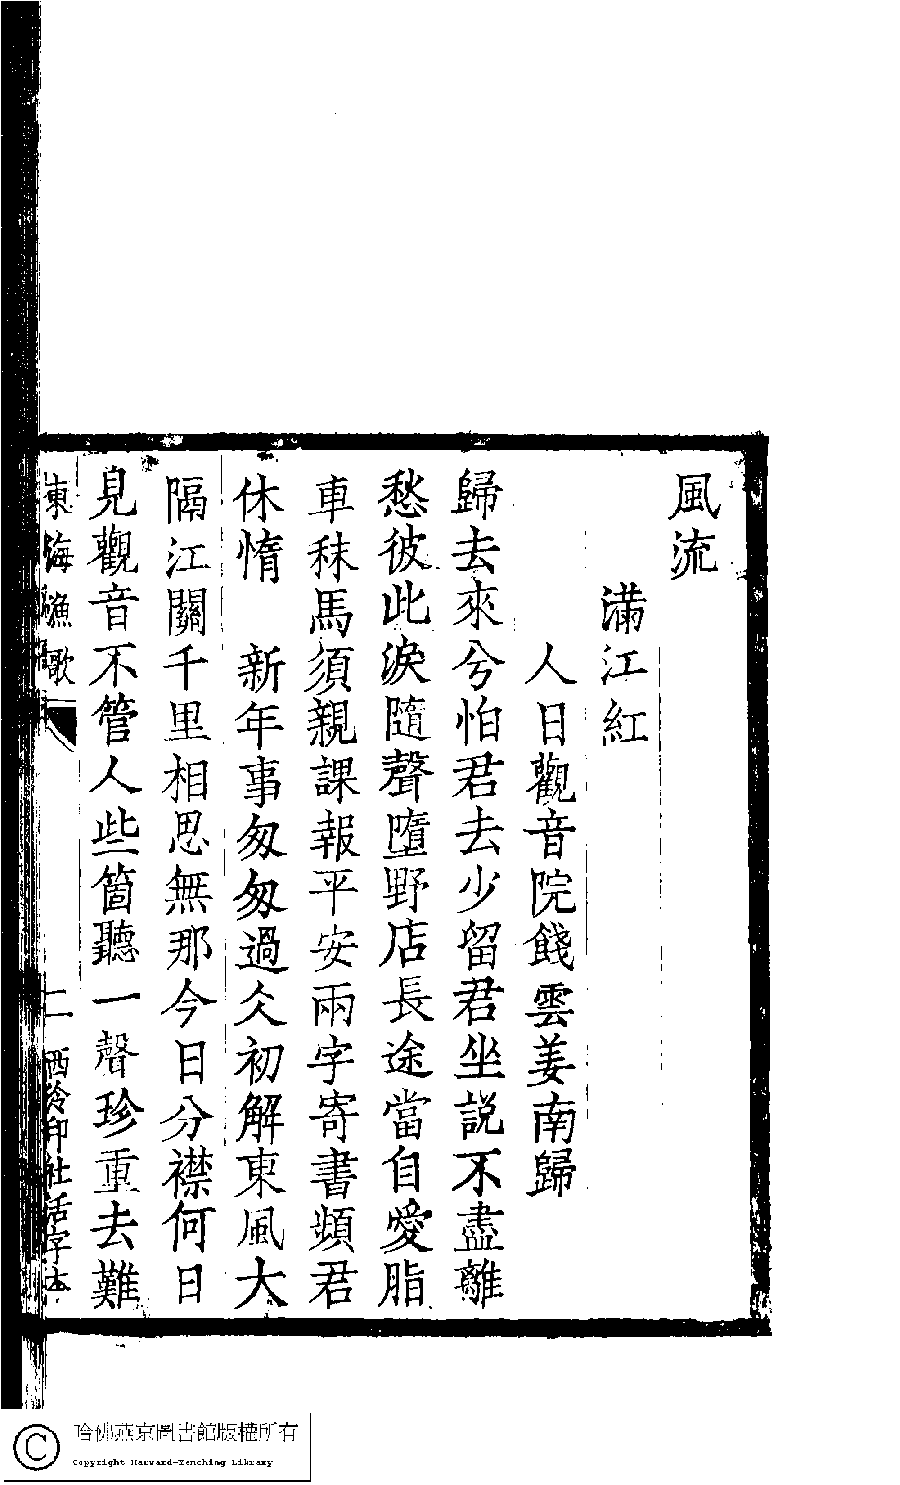 風流
滿江紅
人日觀音院餞雲姜南歸
歸去來兮怕君去少留君坐說不盡離
愁彼此淚隨聲墮野店長途當自愛脂
車秣馬須親課報平安兩字寄書頻君
休惰　新年事匆匆過仌初解東風大
隔江關千里相思無那今日分襟何日
見觀音不管人些箇聽一聲珍重去難
東海漁歌　二　西泠印社活字本
哈佛燕京圖書館版權所有
Copyright Harvard-Yenching Library